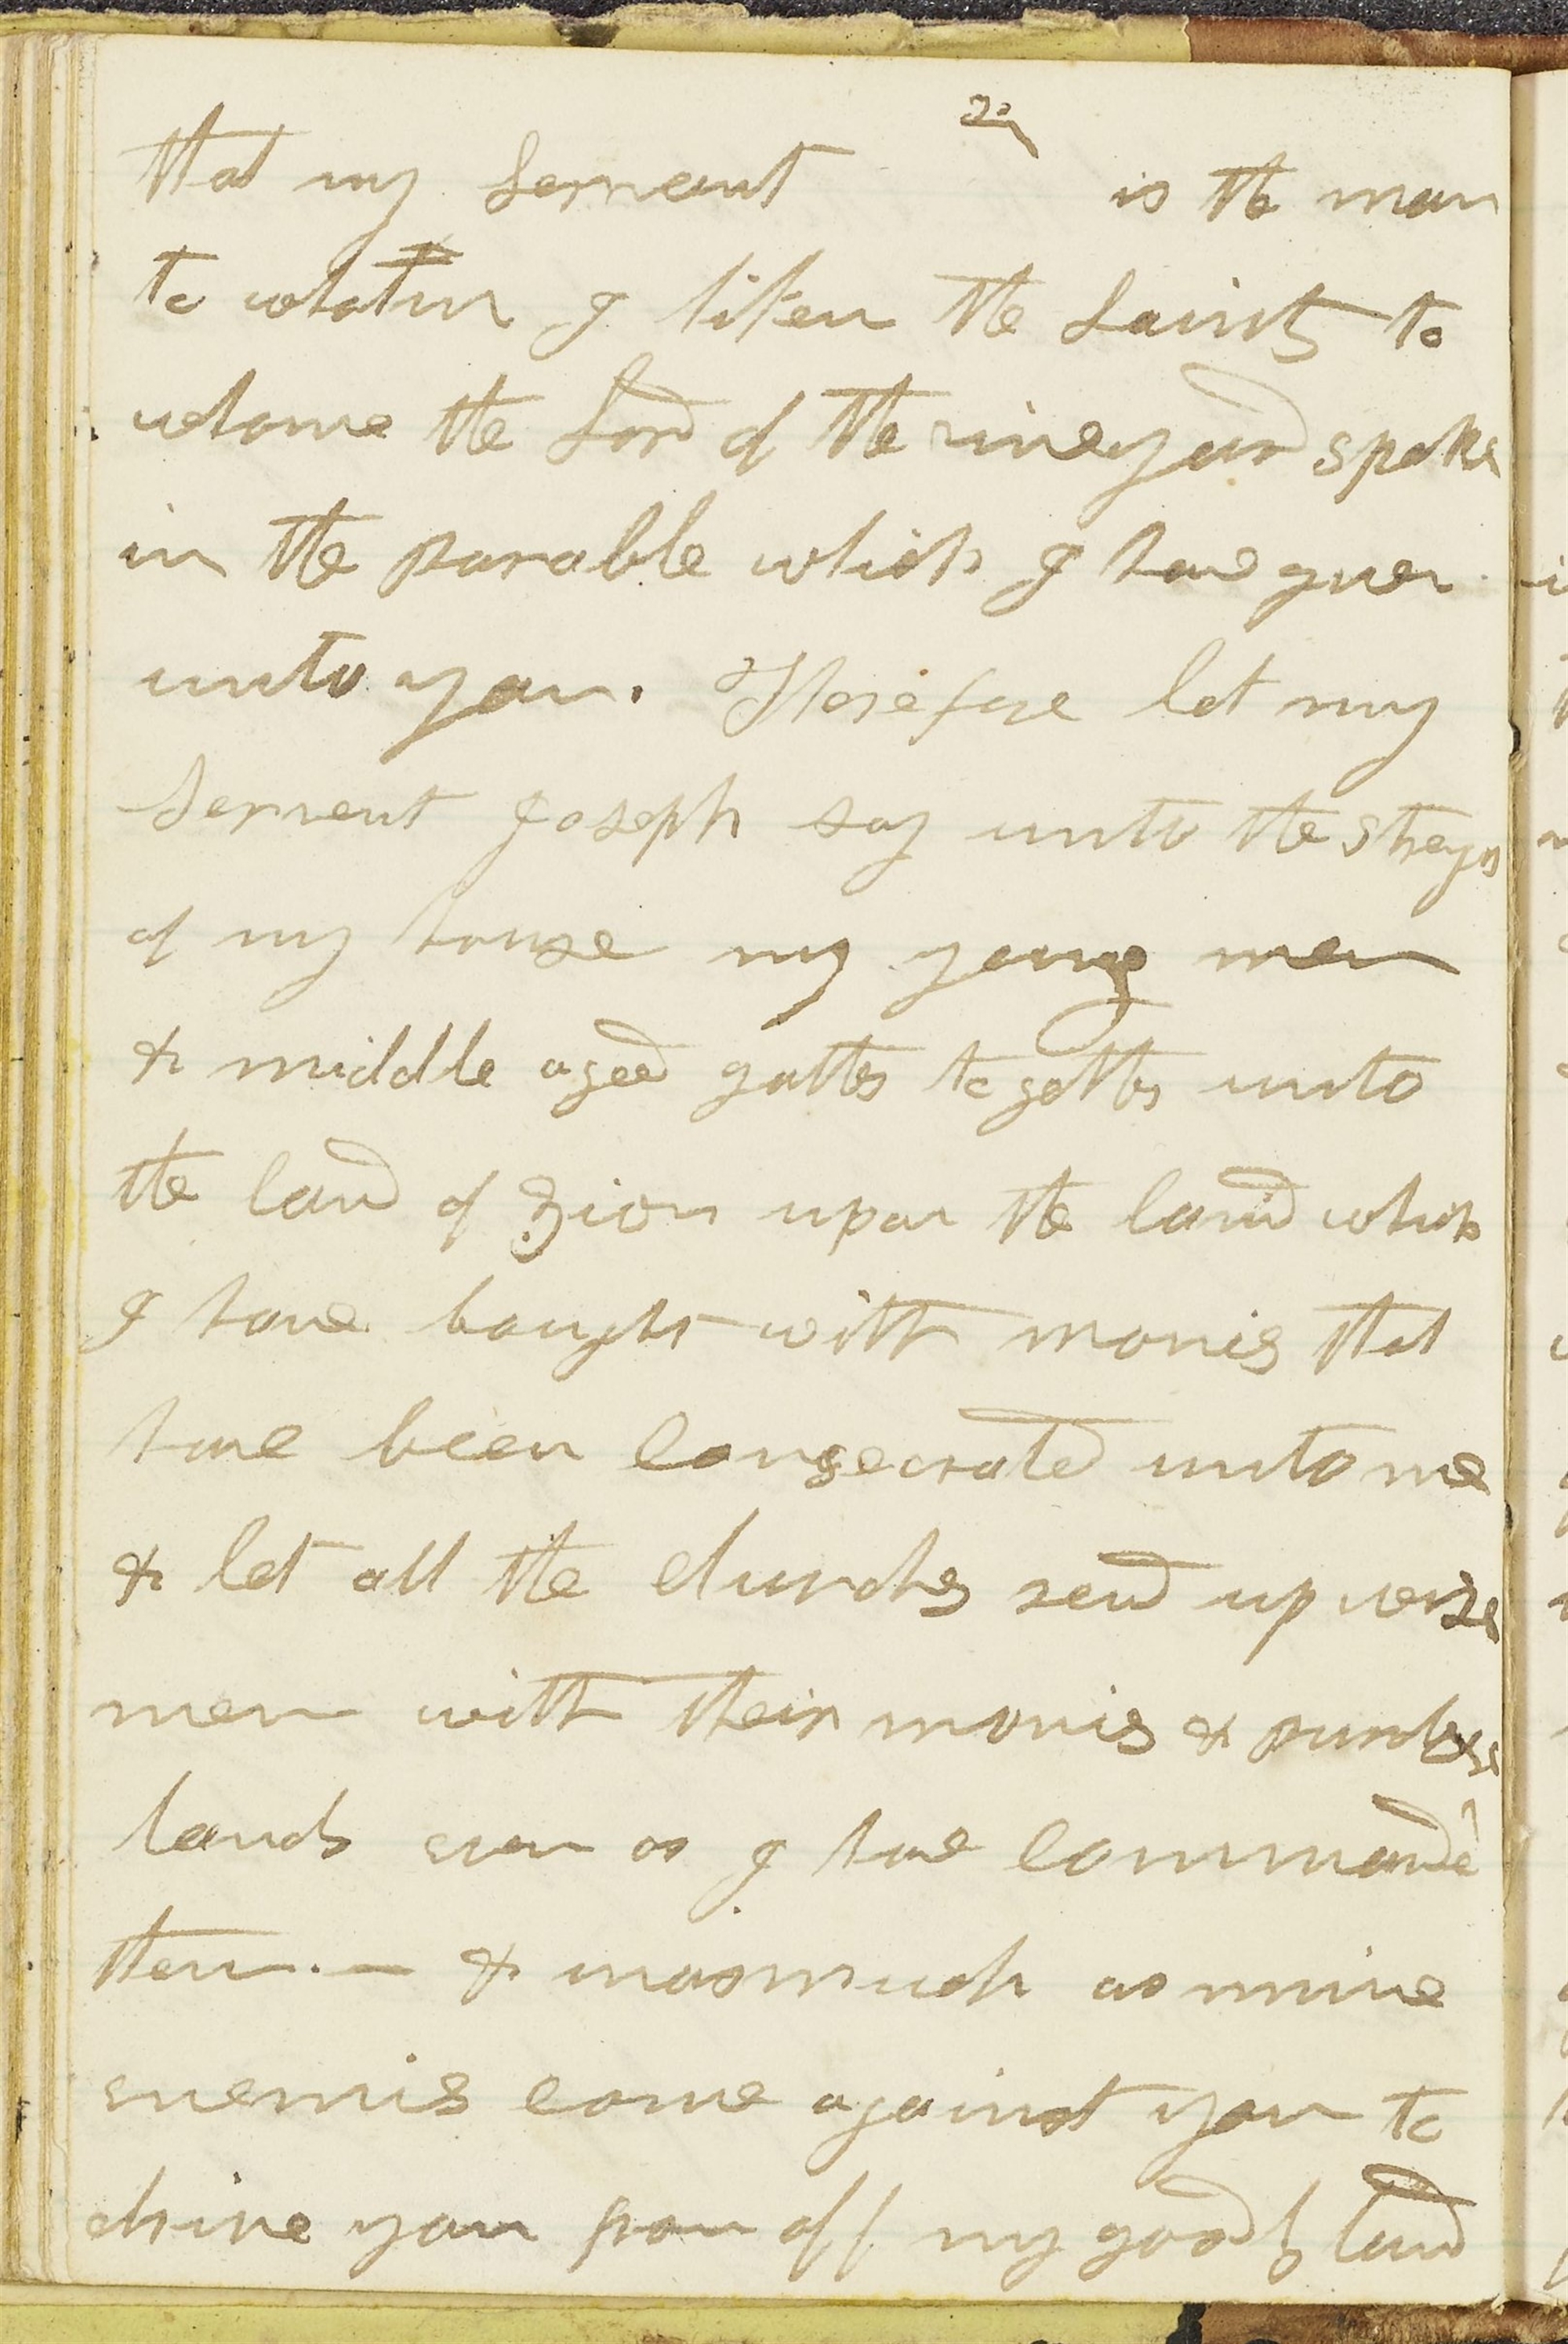 20
that my Servent is the man
to whom I liken the Saints to
whome the Lord of the vineyard spoke
in the parable which I have given
unto you. Therefore let my
Servent Joseph say unto the
of my house my young men
& middle aged gather to gether unto
the land of Zion upon the land which
I have bought with monies that
have been consecrated unto me
& let all the churches send up wise
men with their monies & purchase
lands even as I have commande
them.— & inasmuch as mine
enemies come against you to
drive you from off my goodly land